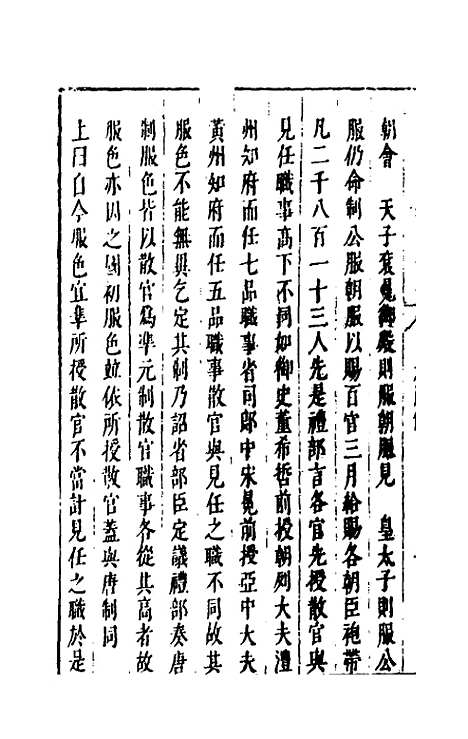 朝會　天子袞冕御殿則服朝服見　皇太子則服公
服仍命制公服朝服以賜百官三月給賜各朝臣袍帶
凡二千八百一十三人先是禮部言各官先授散官與
見任職事高下不同如御史董希哲前授朝列大夫澧
州知府而任七品職事省司郎中宋冕前授亞中大夫
黃州知府而任五品職事散官與見任之職不同故其
服色不能無異乞定其制乃詔省部臣定議禮部奏唐
制服色皆以散官爲準元制散官職事各從其高者故
服色亦因之國初服色並依所授散官蓋與唐制同
上曰自今服色宜準所授散官不當計見任之職於是